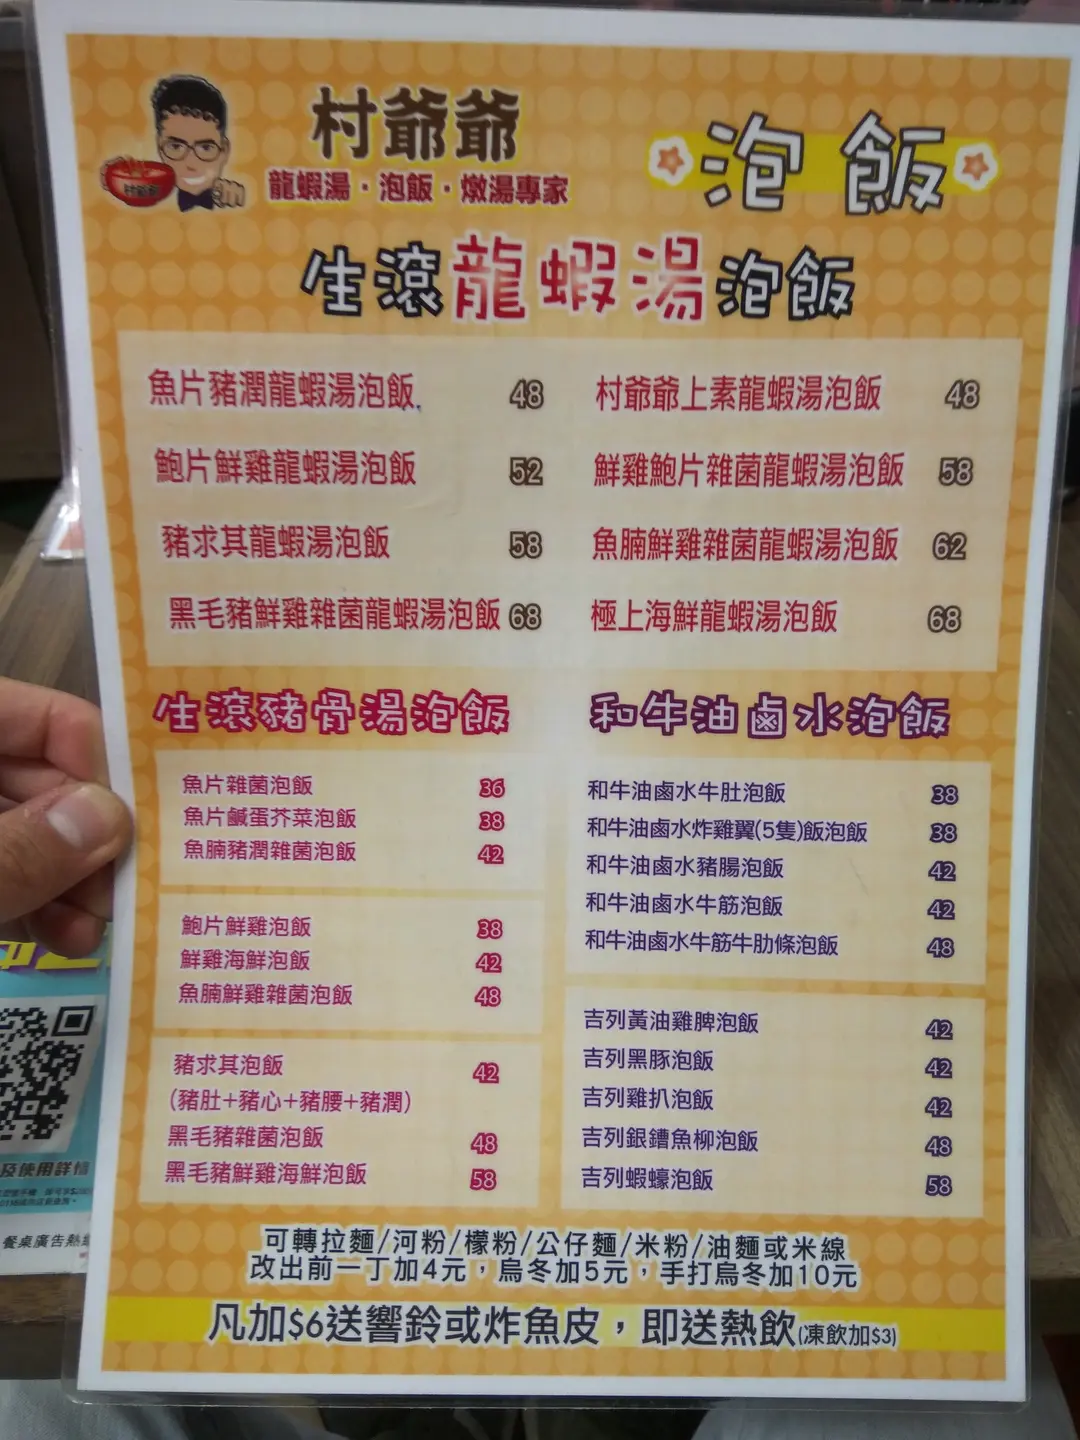 村爺爺
龍蝦湯·泡飯·燉湯專家
村爺爺
泡飯
生滾龍蝦湯泡飯
魚片豬潤龍蝦湯泡飯 48
鮑片鮮雞龍蝦湯泡飯 52
豬求其龍蝦湯泡飯 58
黑毛豬鮮雞雜菌龍蝦湯泡飯 68
村爺爺上素龍蝦湯泡飯 48
鮮雞鮑片雜菌龍蝦湯泡飯 58
魚腩鮮雞雜菌龍蝦湯泡飯 62
極上海鮮龍蝦湯泡飯 68
生滾豬骨湯泡飯
魚片雜菌泡飯 36
魚片鹹蛋芥菜泡飯 38
魚腩豬潤雜菌泡飯 42
鮑片鮮雞泡飯 38
鮮雞海鮮泡飯 42
魚腩鮮雞雜菌泡飯 48
豬求其泡飯 42
(豬肚+豬心+豬腰+豬潤)
黑毛豬雜菌泡飯 48
黑毛豬鮮雞海鮮泡飯 58
和牛油鹵水泡飯
和牛油鹵水牛肚泡飯 38
和牛油鹵水炸雞翼(5隻)飯泡飯 38
和牛油鹵水豬腸泡飯 42
和牛油鹵水牛筋泡飯 42
和牛油鹵水牛筋牛肋條泡飯 48
吉列黃油雞脾泡飯 42
吉列黑豚泡飯 42
吉列雞扒泡飯 42
吉列銀鱈魚柳泡飯 48
吉列蝦蠔泡飯 58
可轉拉麵/河粉/檬粉/公仔麵/米粉/油麵或米線
改出前一丁加4元，烏冬加5元，手打烏冬加10元
凡加$6送響鈴或炸魚皮，即送熱飲(凍飲加$3)
及使用詳情
餐桌廣告熱